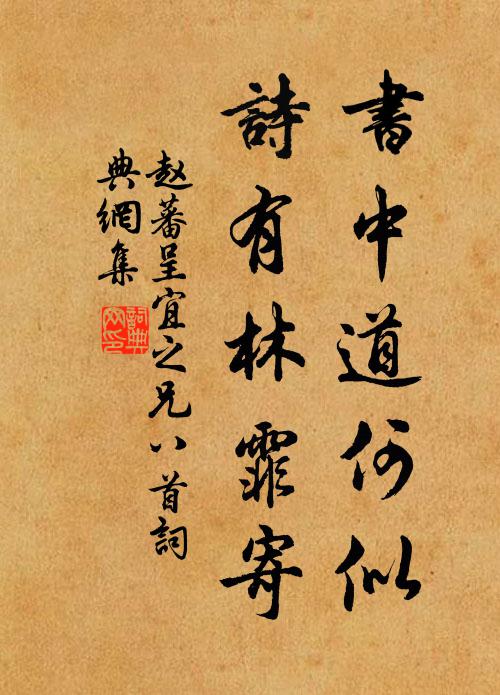 書中道何似
詩有林霏寄
赵蕃呈宜之兄八首詞
典網集
詞典
网印